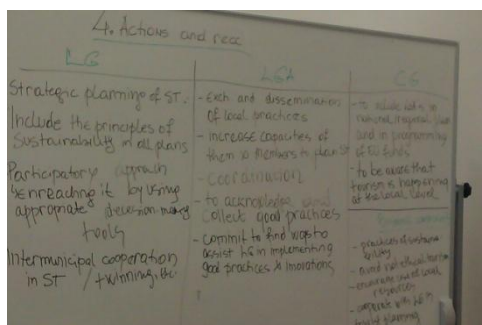 4. Actions and recc
LG
Strategic planning of ST.
Include the principles of
Sustainability in all plans
Participatory approach
enreaching it by using
appropriate decision making
tools
Intermunicipal cooperation
in ST / twinning, etc.
LGA
- Exch and dissemination
of local practices
- increase capacities of
them & members to plan ST
- coordination
- to acknowledge and
collect good practices
- commit to find ways to
assist LG in implementing
good practices & inovations
CG
- to include
national, regional plans
and in programming
of EU funds
- to be aware that
tourism is happening
at the local level
- practices of sustaina-
bility
- avoid not ethical tourism
- use of local
resources
- cooperate with LG in
planning